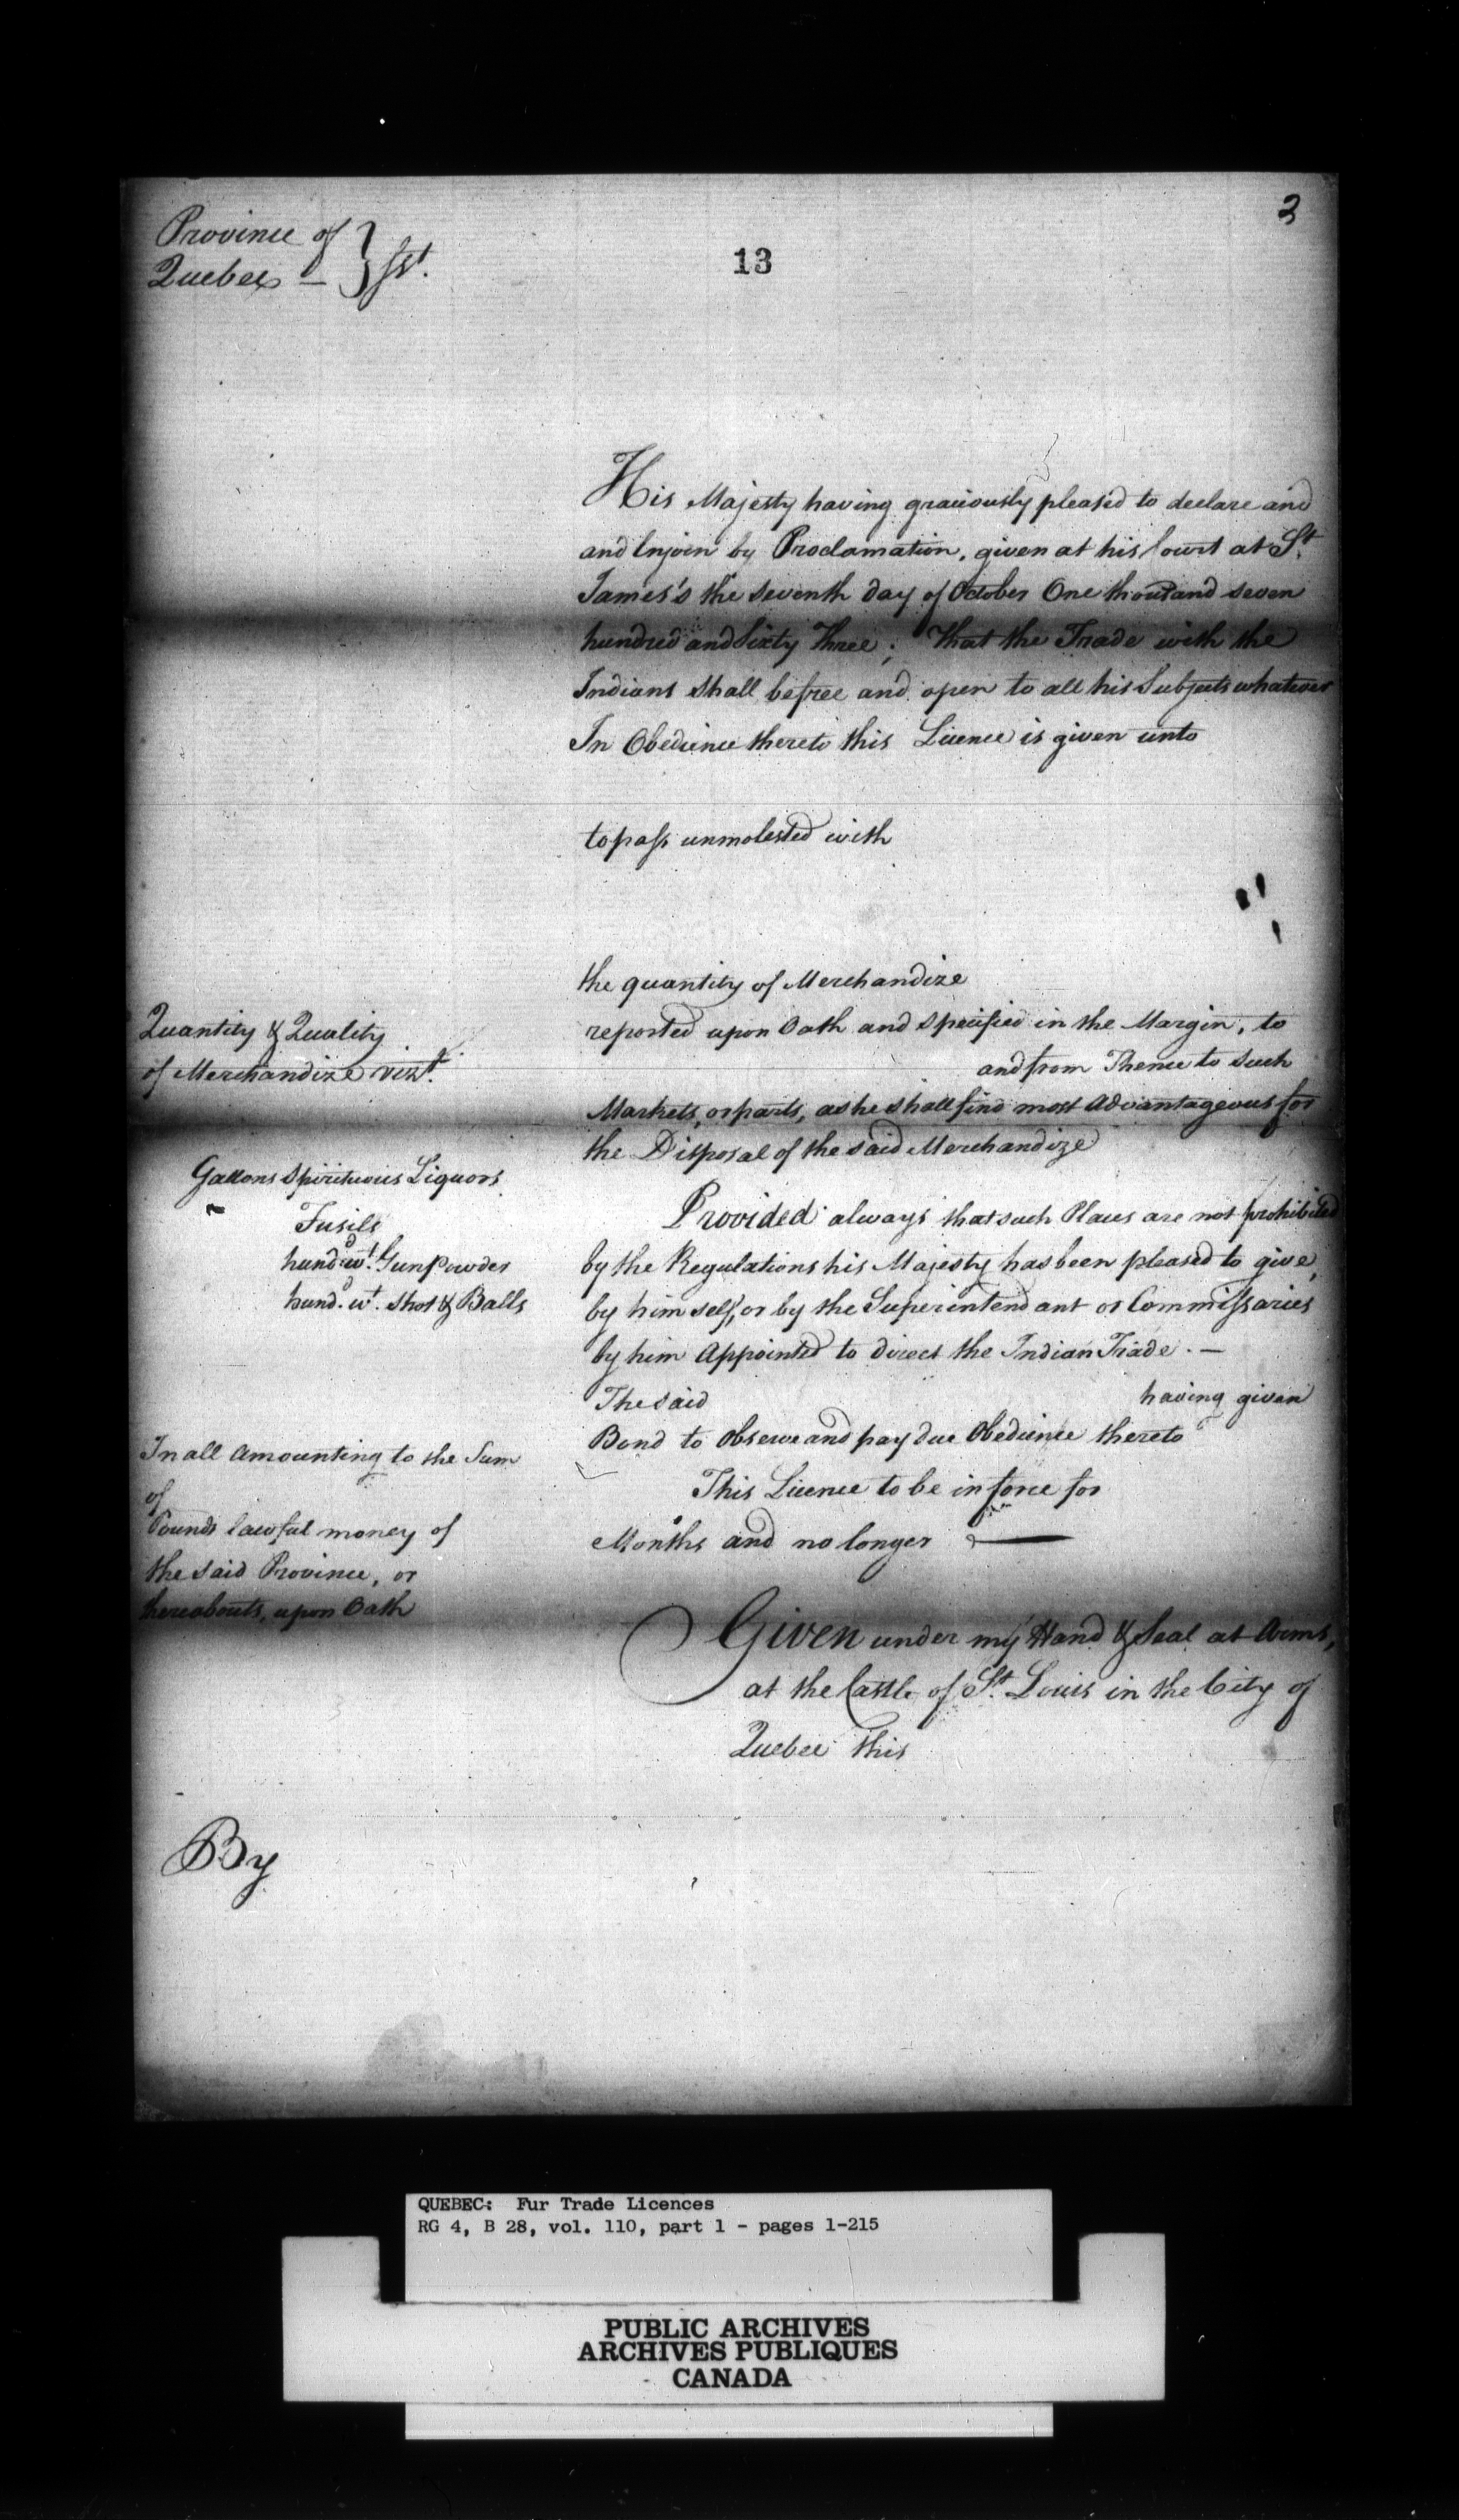 3
Province of
Quebec — } sst.
13
His Majesty having graciously pleased to declare and
and Enjoin by Proclamation, given at his Court at St.
James's the seventh day of October One thousand seven
hundred and Sixty Three; That the Trade with the
Indians shall be free and open to all his Subjects whatever
In Obedience thereto this Licence is given unto
to pass unmolested with
the quantity of Merchandize
reported upon Oath and specified in the Margin, to
and from Thence to such
Markets, or parts, as he shall find most Advantageous for
the Disposal of the said Merchandize
Provided always that such Places are not prohibited
by the Regulations his Majesty has been pleased to give,
by himself, or by the Superintendant or Commissaries
by him Appointed to direct the Indian Trade. —
The said having given
Bond to Observe and pay due Obedience thereto
This Licence to be in force for
Months and no longer —
Given under my Hand & Seal at Arms,
at the Castle of St. Louis in the City of
Quebec this
Quantity & Quality
of Merchandize vizt.
Gallons Spirituous Liquors
Fusils
hund.d wt. Gunpowder
hund.d wt. Shot & Balls
In all Amounting to the Sum
of
Pounds lawful money of
the said Province, or
thereabouts, upon Oath
By
QUEBEC: Fur Trade Licences
RG 4, B 28, vol. 110, part 1 - pages 1-215
PUBLIC ARCHIVES
ARCHIVES PUBLIQUES
CANADA